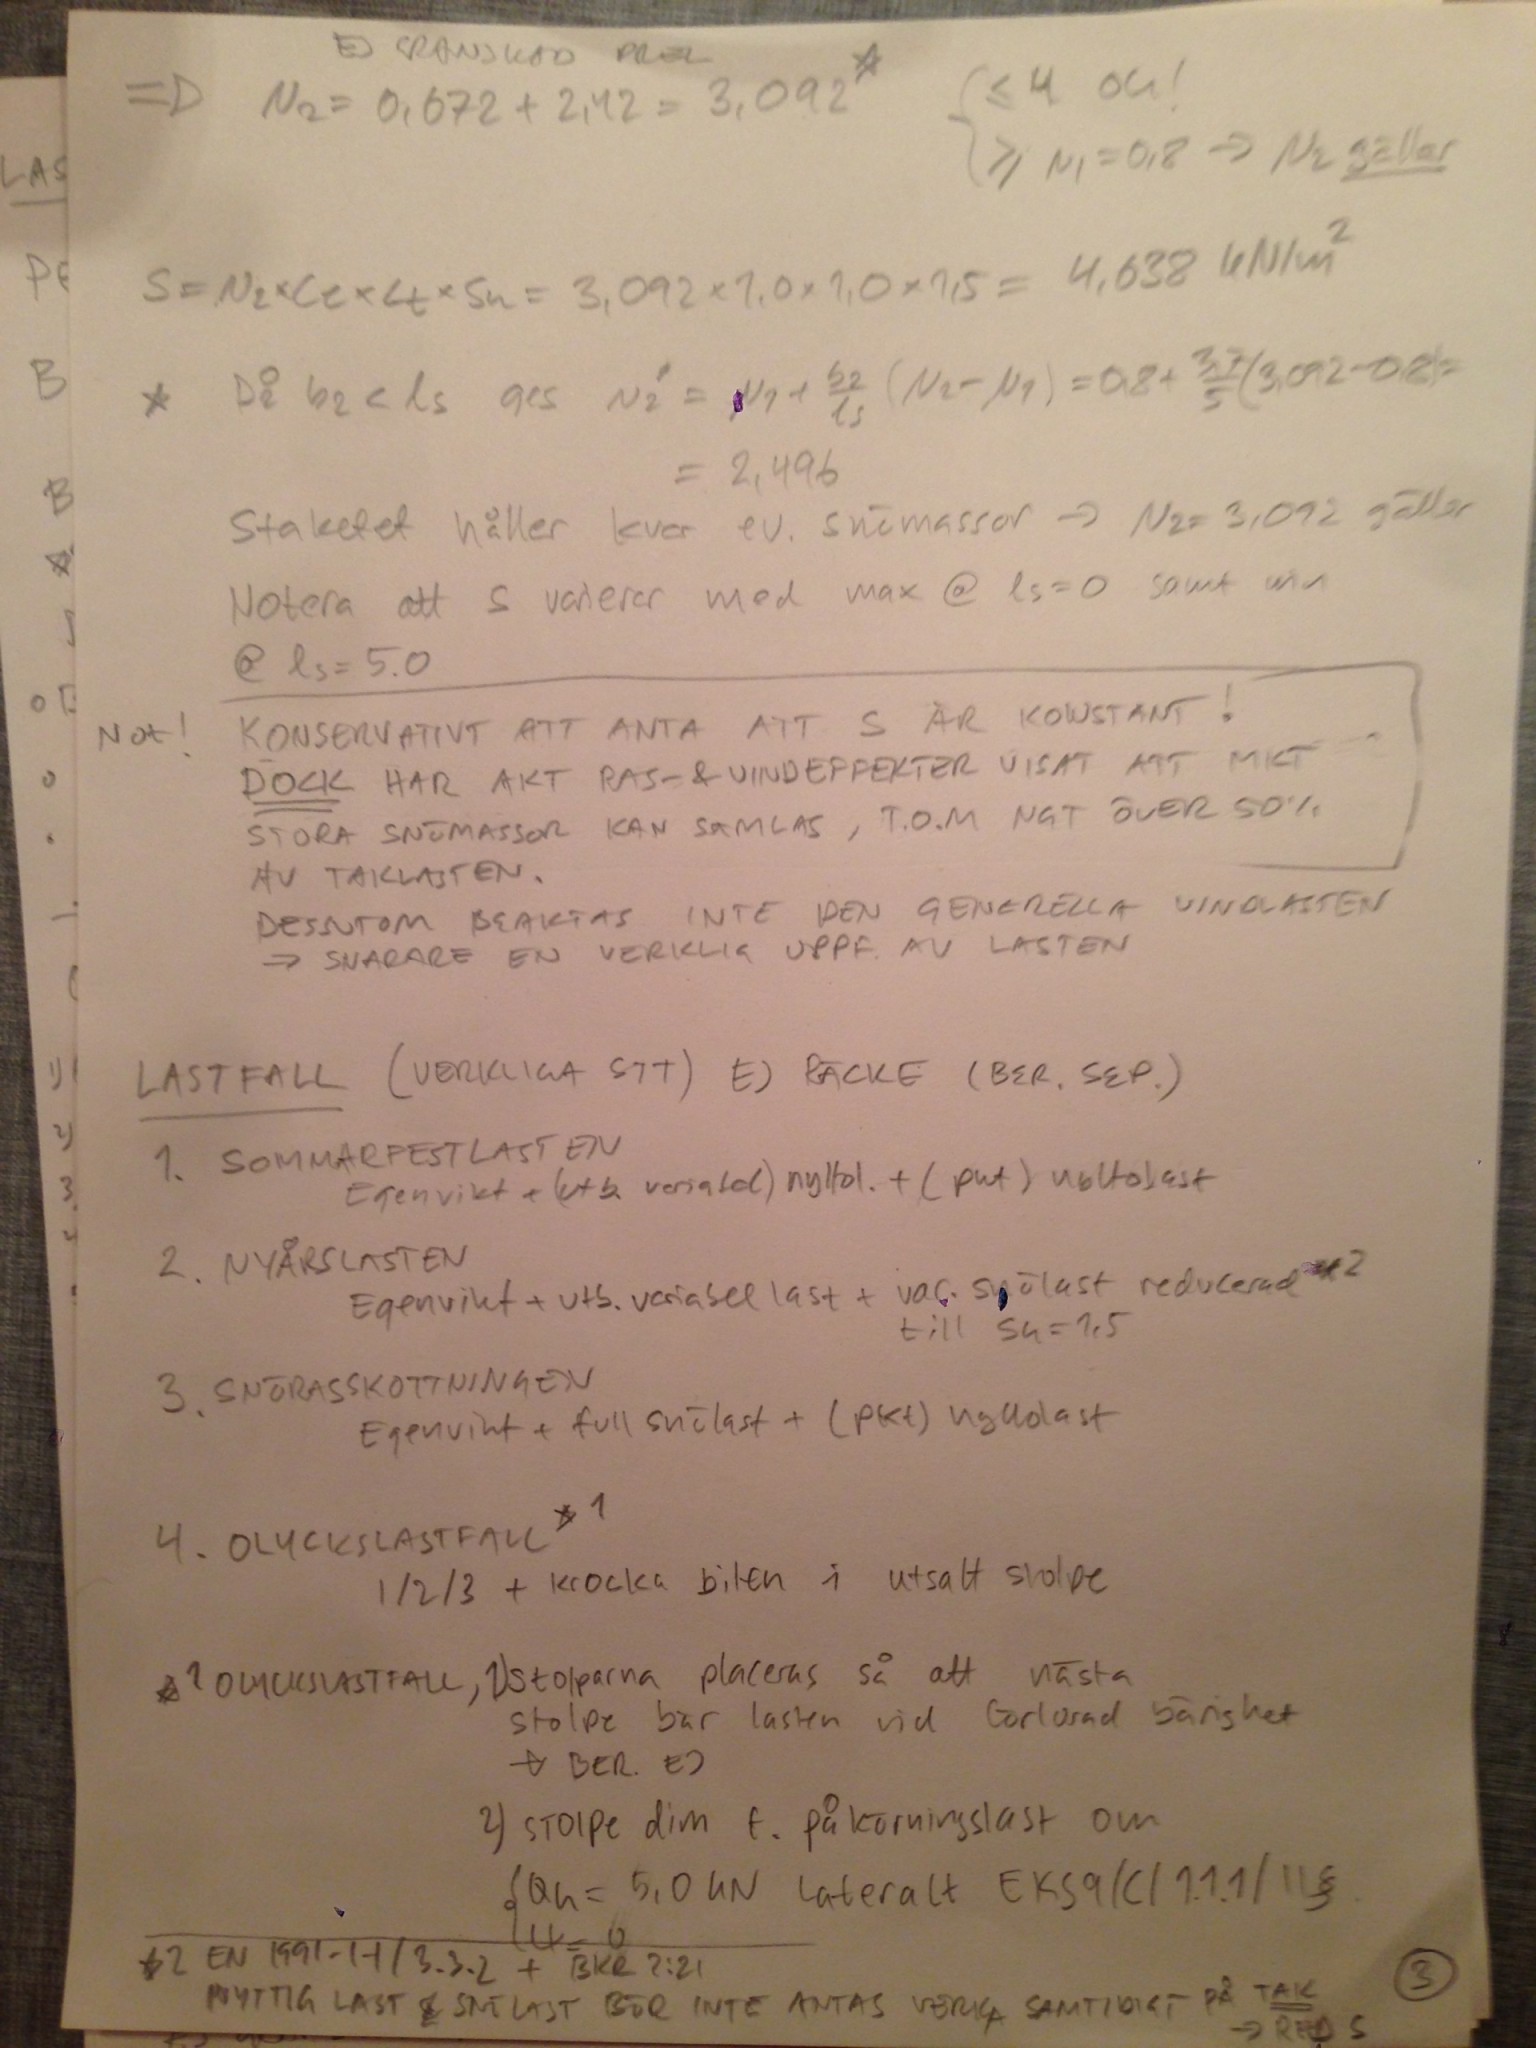 EJ GRANSKAD PREL
=> μ2 = 0,672 + 2,42 = 3,092* { ≤ 4 OK!
≥ μ1 = 0,8 → μ2 gäller
S = μ2 × Ce × Ct × Sk = 3,092 × 1,0 × 1,0 × 1,5 = 4,638 kN/m²
* Då b2 < ls ges μ2' = μ1 + b2/ls (μ2 - μ1) = 0,8 + 3,7/5 (3,092 - 0,8) =
= 2,496
Staketet håller kvar ev. snömassor → μ2 = 3,092 gäller
Notera att S varierar med max @ ls=0 samt min
@ ls = 5.0
Not! KONSERVATIVT ATT ANTA ATT S ÄR KONSTANT!
DOCK HAR AKT RAS- & VINDEFFEKTER VISAT ATT MKT
STORA SNÖMASSOR KAN SAMLAS, T.O.M NGT ÖVER 50%
AV TAKLASTEN.
DESSUTOM BEAKTAS INTE DEN GENERELLA VINDLASTEN
→ SNARARE EN VERKLIG UPPF. AV LASTEN
LASTFALL (VERKLIGA STT) EJ RÄCKE (BER. SEP.)
1. SOMMARFESTLASTEN
Egenvikt + (utb. variabel) nyttol. + (pkt) nyttolast
2. NYÅRSLASTEN
Egenvikt + utb. variabel last + var. snölast reducerad *2
till Sk = 1,5
3. SNÖRASSKOTTNINGEN
Egenvikt + full snölast + (pkt) nyttolast
4. OLYCKSLASTFALL *1
1/2/3 + krocka bilen i utsatt stolpe
*1 OLYCKSLASTFALL, 1) Stolparna placeras så att nästa
stolpe bär lasten vid förlorad bärighet
→ BER. EJ
2) STOLPE dim f. påkörningslast om
{ Qk = 5,0 kN lateralt EKS9/C/1.1.1/11§
Ψ = 0
*2 EN 1991-1-1/3.3.2 + BKR 2:21
NYTTIG LAST & SNÖLAST BÖR INTE ANTAS VERKA SAMTIDIGT på TAK
→ RED S
3
LAS
B
B
*
1)
2)
3.